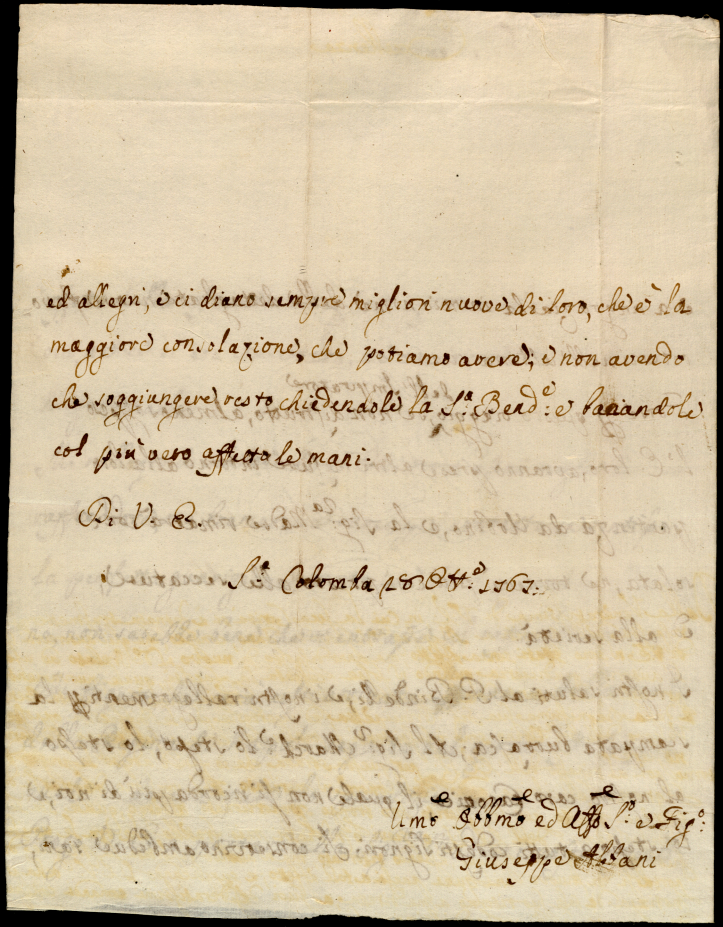 ed allegri, e ci diano sempre miglior nuove di loro, che è la
maggiore consolazione, che potiamo avere; e non avendo
che soggiungere resto chiedendole la S.ª Bend.e: e baciandole
col più vero affetto le mani.
Di V. E.
S.ª Colomba 28 Ott.e: 1767:
Umo Obbmo ed Affo S.o e Fig.o:
Giuseppe Albani